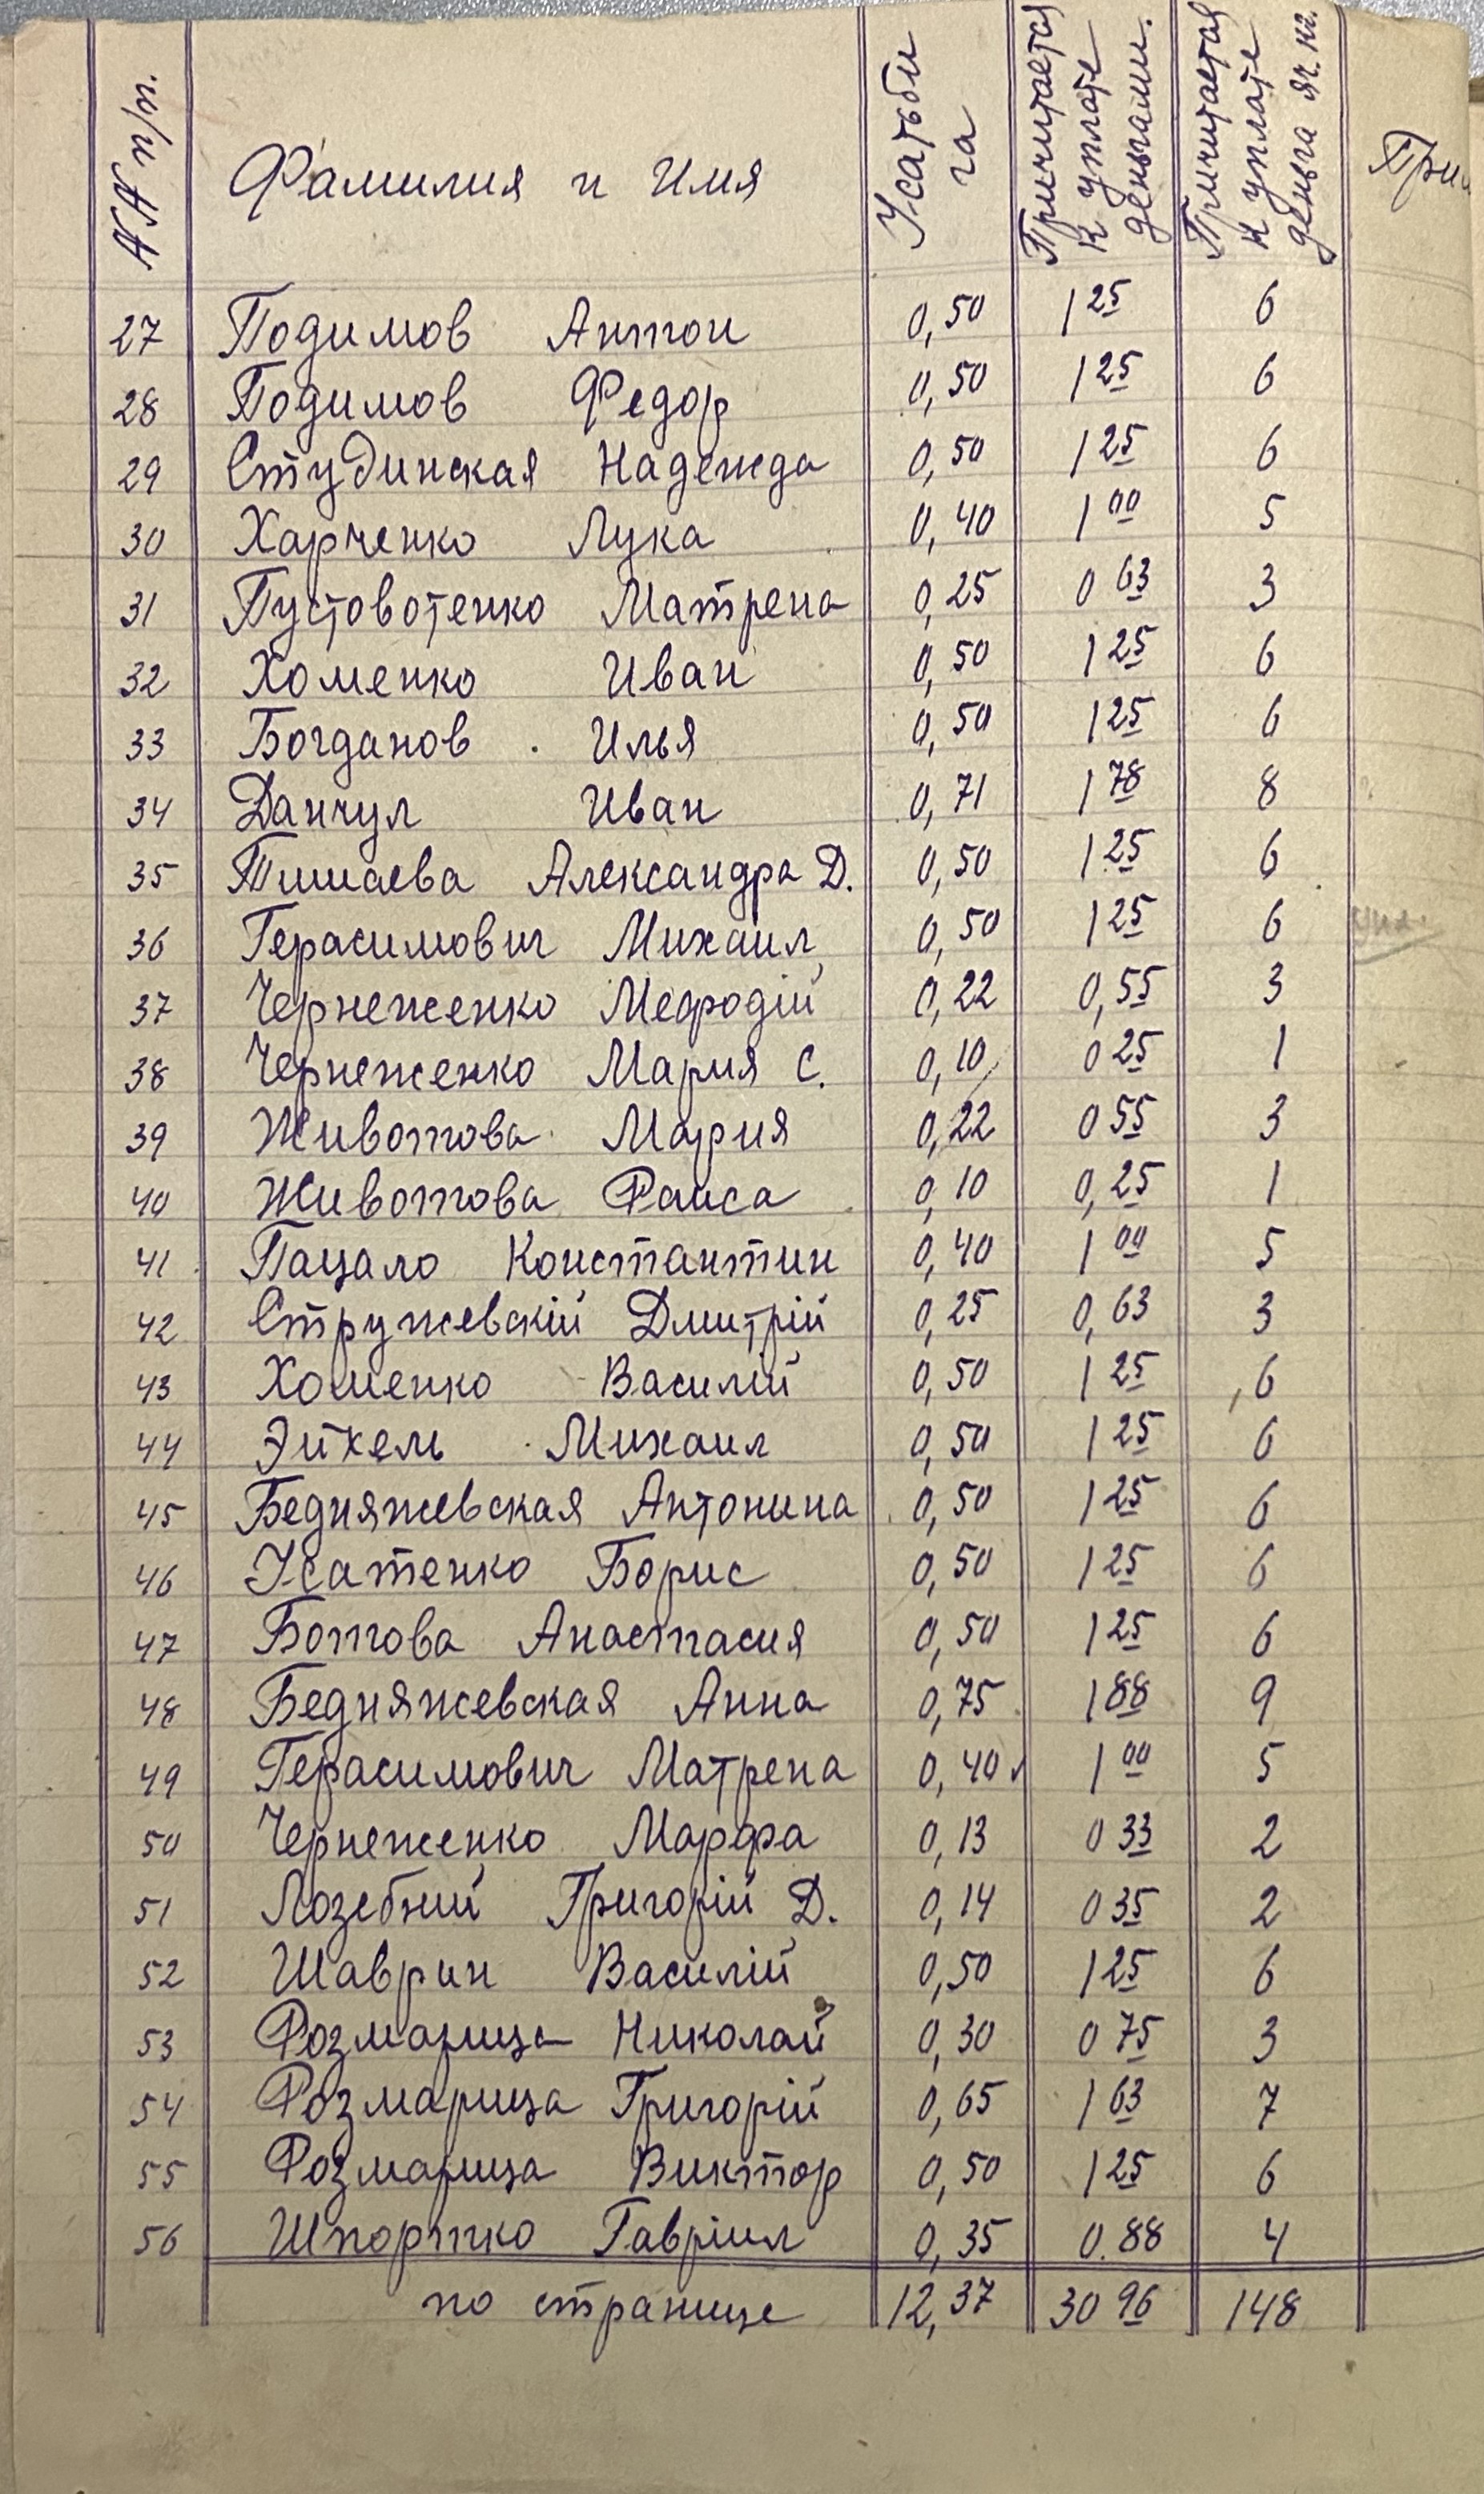 №№ п/п. Фамилия и Имя Усатьби га Причитается к уплате деньгами. Причитается к уплате деньга яч. кг. Прим
27 Подимов Антон 0,50 1 25 6
28 Подимов Федор 0,50 1 25 6
29 Студинская Надежда 0,50 1 25 6
30 Харченко Лука 0,40 1 00 5
31 Пустовотенко Матрена 0,25 0 63 3
32 Хоменко Иван 0,50 1 25 6
33 Богданов Илья 0,50 1 25 6
34 Данчул Иван 0,71 1 78 8
35 Тишаева Александра Д. 0,50 1 25 6
36 Герасимович Михаил 0,50 1 25 6
37 Чернеженко Мефодій 0,22 0,55 3
38 Чернеженко Мария С. 0,10 0 25 1
39 Животова Мария 0,22 0 55 3
40 Животова Раиса 0,10 0,25 1
41 Пацало Константин 0,40 1 00 5
42 Стружевскій Дмитрій 0,25 0,63 3
43 Хоменко Василій 0,50 1 25 6
44 Эйхель Михаил 0,50 1 25 6
45 Бедняжевская Антонина 0,50 1 25 6
46 Усатенко Борис 0,50 1 25 6
47 Ботова Анастасия 0,50 1 25 6
48 Бедняжевская Анна 0,75 1 88 9
49 Герасимович Матрена 0,40 1 00 5
50 Чернеженко Марфа 0,13 0 33 2
51 Лозебный Григорій Д. 0,14 0 35 2
52 Шаврин Василій 0,50 1 25 6
53 Розмарица Николай 0,30 0 75 3
54 Розмарица Григорій 0,65 1 63 7
55 Розмарица Виктор 0,50 1 25 6
56 Шпортко Гавріил 0,35 0.88 4
по странице 12,37 30 96 148